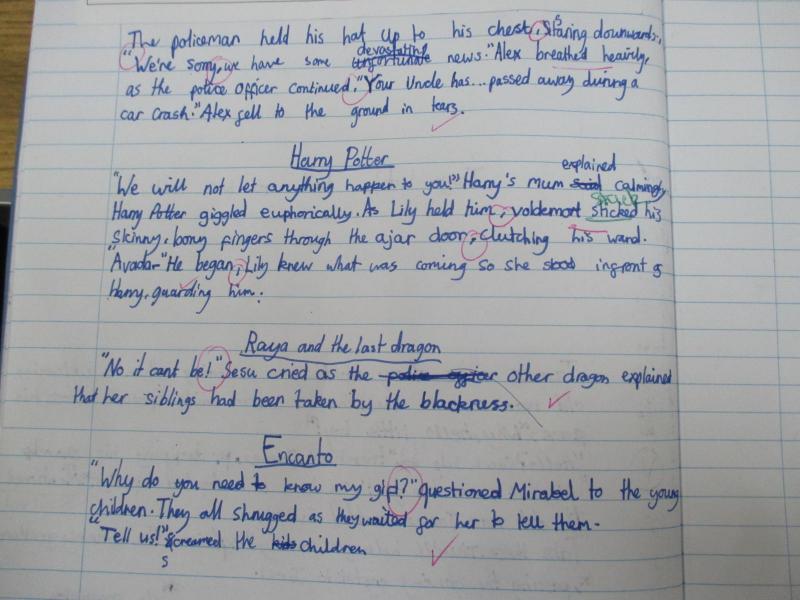 The policeman held his hat up to his chest, staring downwards.
devastating
"We're sorry, we have some unfortunate news." Alex breathed heavily,
as the police officer continued. "Your Uncle has... passed away during a
car crash." Alex fell to the ground in tears.
Harry Potter
explained
"We will not let anything happen to you!" Harry's mum said calmingly,
Harry Potter giggled euphorically. As Lily held him, voldemort sticked his
skinny, bony fingers through the ajar door, clutching his wand.
"Avada-" He began, Lily knew what was coming so she stood infront of
Harry, guarding him.
Raya and the last dragon
"No it cant be!" Sesu cried as the police officer other dragon explained
that her siblings had been taken by the blackness.
Encanto
"Why do you need to know my gift?" questioned Mirabel to the young
children. They all shrugged as they waited for her to tell them.
"Tell us!" screamed the kids children
s